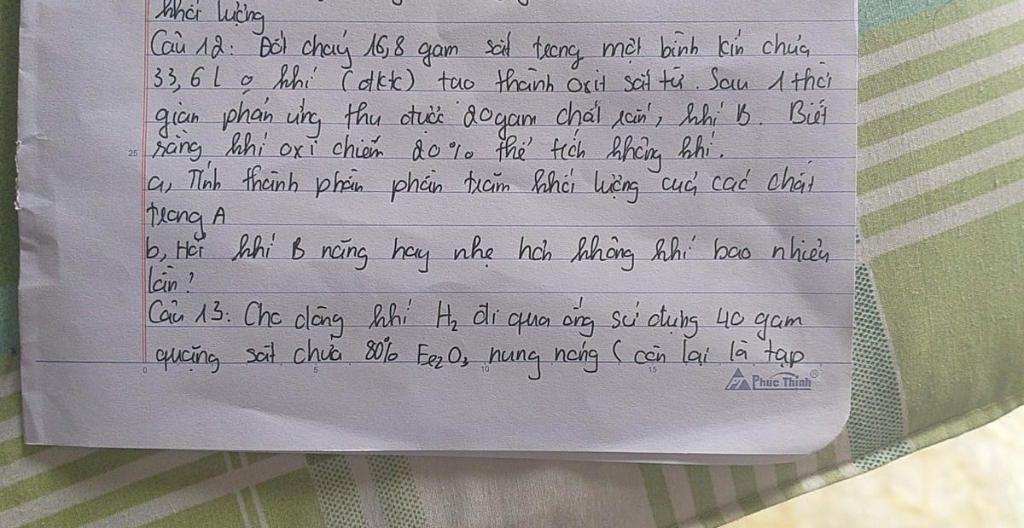 khối lượng
Câu 12: Đốt cháy 16,8 gam sắt trong một bình kín chứa
33,6 l khí (đktc) tạo thành oxit sắt từ. Sau 1 thời
gian phản ứng thu được 20 gam chất rắn, khí B. Biết
25
rằng khí oxi chiếm 20% thể tích không khí.
a, Tính thành phần phần trăm khối lượng của các chất
trong A
b, Hỏi khí B nặng hay nhẹ hơn không khí bao nhiêu
lần?
Câu 13: Cho dòng khí H2 đi qua ống sứ đựng 40 gam
quặng sắt chứa 80% Fe2O3 nung nóng (còn lại là tạp
0 5 10 15
Phuc Thinh®